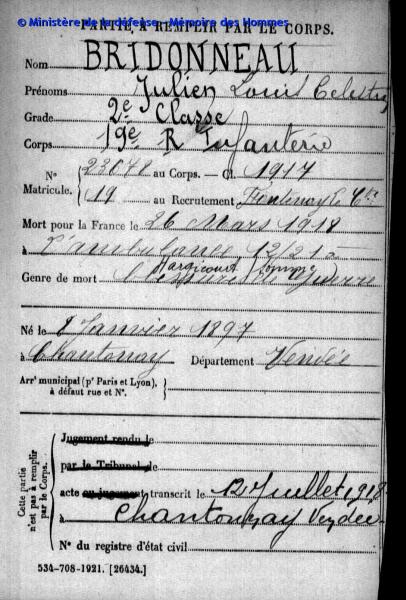 © Ministère de la défense - Mémoire des Hommes
PARTIE A REMPLIR PAR LE CORPS.
Nom BRIDONNEAU
Prénoms Julien Louis Celestin
Grade 2e Classe
Corps 19e R Infanterie
N° 23078 au Corps. — Cl. 1917
Matricule. 19 au Recrutement Fontenay le Cte
Mort pour la France le 26 Mars 1918
à L'ambulance 12/21
Hargicourt Somme
Genre de mort de Guerre
Né le 8 Janvier 1897
à Chantonnay Département Vendée
Arrt municipal (pr Paris et Lyon), à défaut rue et N°.
Cette partie n'est pas à remplir par le Corps.
Jugement rendu le
par le Tribunal de
acte ou jugement transcrit le 12 Juillet 1918
à Chantonnay Vendée
N° du registre d'état civil
534-708-1921. [26434.]